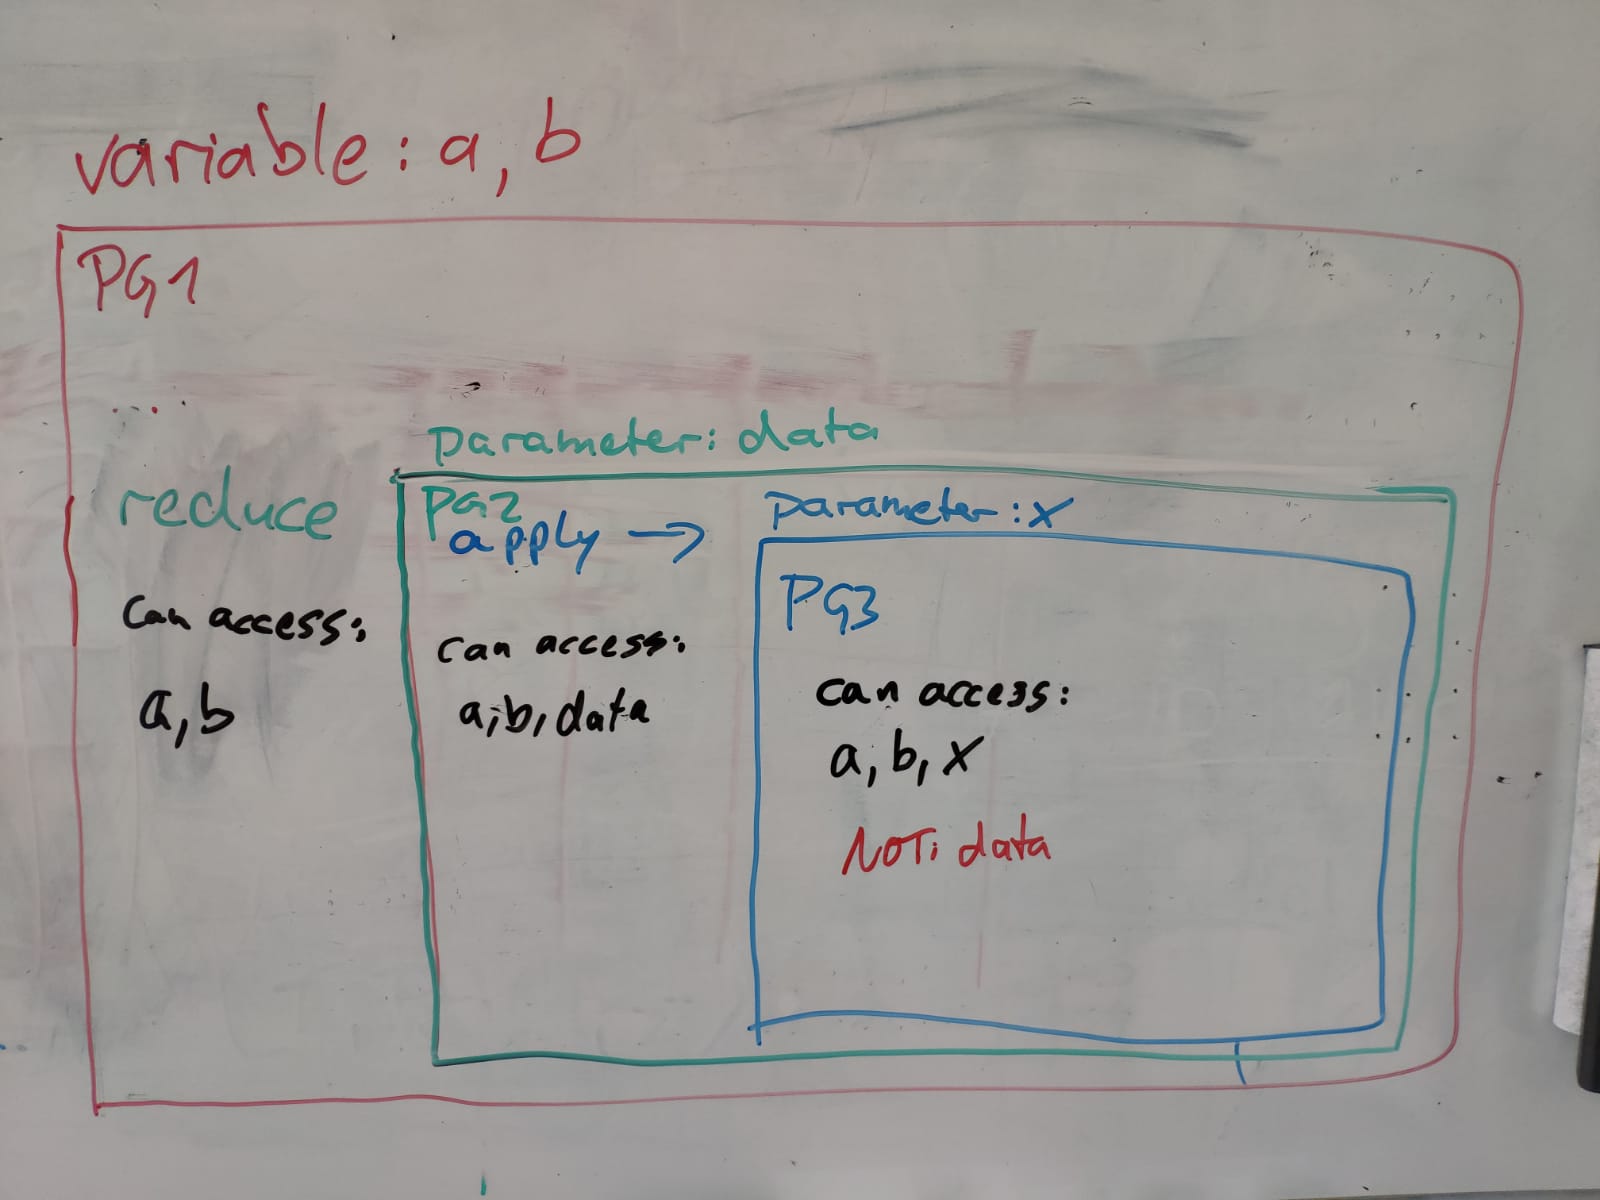 variable: a, b
PG1
parameter: data
reduce
PG2
apply →
parameter: x
PG3
can access:
a, b
can access:
a, b, data
can access:
a, b, x
NOT: data